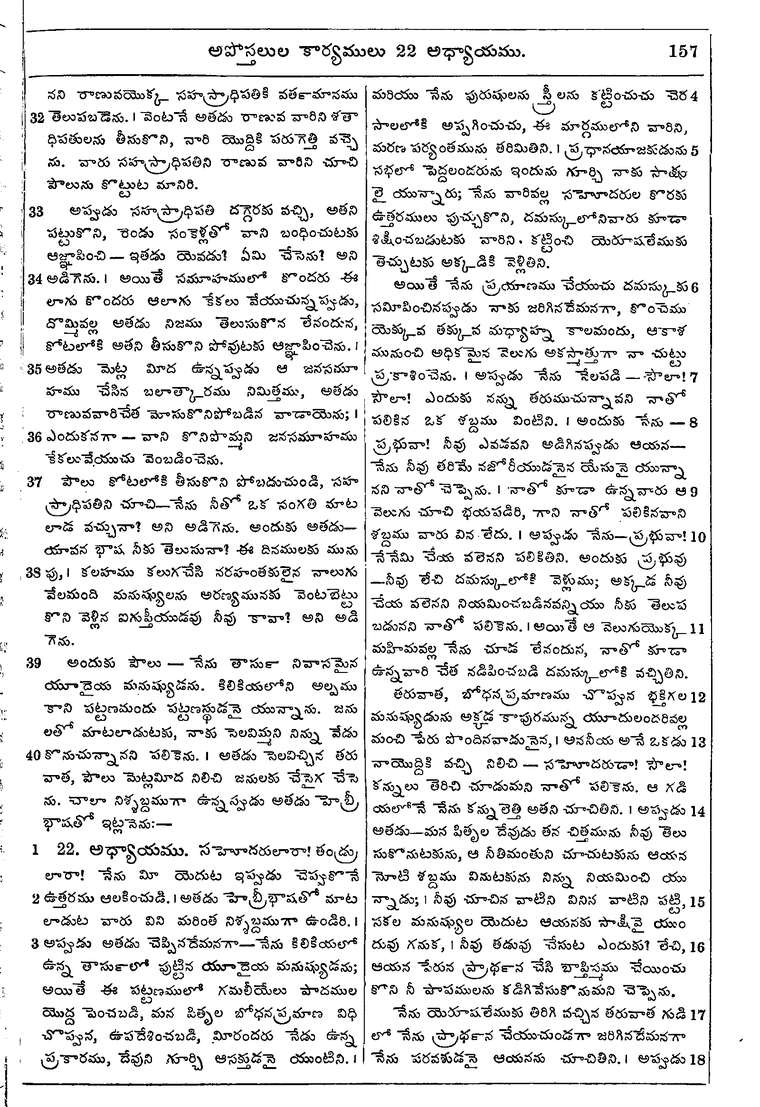 అపోస్తలుల కార్యములు 22 అధ్యాయము.
157
నని రాణువయొక్క సహస్రాధిపతికి వర్తమానము
32 తెలుపబడెను. । వెంటనే అతడు రాణువ వారిని శతా
ధిపతులను తీసుకొని, వారి యొద్దికి పరుగెత్తి వచ్చె
ను. వారు సహస్రాధిపతిని రాణువ వారిని చూచి
పౌలును కొట్టుట మానిరి.
33 అప్పుడు సహస్రాధిపతి దగ్గెరకు వచ్చి, అతని
పట్టుకొని, రెండు సంకెళ్లతో వాని బంధించుటకు
ఆజ్ఞాపించి — ఇతడు యెవడు? ఏమి చేసెను? అని
34 అడిగెను. । అయితే సమూహములో కొందరు ఈ
లాగు కొందరు ఆలాగు కేకలు వేయుచున్నప్పుడు,
దొమ్మివల్ల అతడు నిజము తెలుసుకొన లేనందున,
కోటలోకి అతని తీసుకొని పోవుటకు ఆజ్ఞాపించెను. ।
35 అతడు మెట్ల మీద ఉన్నప్పుడు ఆ జనసమూ
హము చేసిన బలాత్కారము నిమిత్తము, అతడు
రాణువవారిచేత మోసుకొనిపోబడిన వాడాయెను; ।
36 ఎందుకనగా — వాని కొనిపొమ్మని జనసమూహము
కేకలువేయుచు వెంబడించెను.
37 పౌలు కోటలోకి తీసుకొని పోబడుచుండి, సహ
స్రాధిపతిని చూచి—నేను నీతో ఒక సంగతి మాట
లాడ వచ్చునా? అని అడిగెను. అందుకు అతడు—
యావన భాష నీకు తెలుసునా? ఈ దినములకు మును
38 పు, । కలహము కలుగచేసి నరహంతకులైన నాలుగు
వేలమంది మనుష్యులను అరణ్యమునకు వెంటబెట్టు
కొని వెళ్లిన ఐగుప్తీయుడవు నీవు కావా? అని అడి
గెను.
39 అందుకు పౌలు — నేను తార్సు నివాసమైన
యూదైయ మనుష్యుడను. కిలికియలోని అల్పము
కాని పట్టణమందు పట్టణస్థుడనై యున్నాను. జను
లతో మాటలాడుటకు, నాకు సెలవిమ్మని నిన్ను వేడు
40 కొనుచున్నానని పలికెను. । అతడు సెలవిచ్చిన తరు
వాత, పౌలు మెట్లమీద నిలిచి జనులకు చేసైగ చేసె
ను. చాలా నిశ్శబ్దముగా ఉన్నప్పుడు అతడు హెబ్రీ
భాషతో ఇట్లనెను:—
1 22. అధ్యాయము. సహెూదరులారా! తండ్రు
లారా! నేను మీ యెదుట ఇప్పుడు చెప్పుకొనే
2 ఉత్తరము ఆలకించుడి. । అతడు హెబ్రీభాషతో మాట
లాడుట వారు విని మరింత నిశ్శబ్దముగా ఉండిరి. ।
3 అప్పుడు అతడు చెప్పినదేమనగా—నేను కిలికియలో
ఉన్న తార్సులో పుట్టిన యూదైయ మనుష్యుడను;
అయితే ఈ పట్టణములో గమలీయేలు పాదముల
యొద్ద పెంచబడి, మన పితృల బోధనప్రమాణ విధి
చొప్పున, ఉపదేశించబడి, మీరందరు నేడు ఉన్న
ప్రకారము, దేవుని గూర్చి ఆసక్తుడనై యుంటిని. ।
మరియు నేను పురుషులను స్త్రీలను కట్టించుచు చెర 4
సాలలోకి అప్పగించుచు, ఈ మార్గములోని వారిని,
మరణ పర్యంతమును తరిమితిని. । ప్రధానయాజకుడును 5
సభలో పెద్దలందరును ఇందును గూర్చి నాకు సాక్షు
లై యున్నారు; నేను వారివల్ల సహెూదరుల కొరకు
ఉత్తరములు పుచ్చుకొని, దమస్కులోనివారు కూడా
శిక్షించబడుటకు వారిని కట్టించి యెరూషలేముకు
తెచ్చుటకు అక్కడికి వెళ్లితిని.
అయితే నేను ప్రయాణము చేయుచు దమస్కుకు 6
సమీపించినప్పుడు నాకు జరిగినదేమనగా, కొంచెము
యెక్కువ తక్కువ మధ్యాహ్న కాలమందు, ఆకాశ
మునుంచి అధికమైన వెలుగు అకస్మాత్తుగా నా చుట్టు
ప్రకాశించెను. । అప్పుడు నేను నేలపడి — సౌలా! 7
సౌలా! ఎందుకు నన్ను తరుముచున్నావని నాతో
పలికిన ఒక శబ్దము వింటిని. । అందుకు నేను — 8
ప్రభువా! నీవు ఎవడవని అడిగినప్పుడు ఆయన—
నేను నీవు తరిమే నజోరీయుడనైన యేసునై యున్నా
నని నాతో చెప్పెను. । నాతో కూడా ఉన్నవారు ఆ 9
వెలుగు చూచి భయపడిరి, గాని నాతో పలికినవాని
శబ్దము వారు విన లేదు. । అప్పుడు నేను—ప్రభువా! 10
నేనేమి చేయ వలెనని పలికితిని. అందుకు ప్రభువు
—నీవు లేచి దమస్కులోకి వెళ్లుము; అక్కడ నీవు
చేయ వలెనని నియమించబడినవన్నియు నీకు తెలుప
బడునని నాతో పలికెను. । అయితే ఆ వెలుగుయొక్క 11
మహిమవల్ల నేను చూడ లేనందున, నాతో కూడా
ఉన్నవారి చేత నడిపించబడి దమస్కులోకి వచ్చితిని.
తరువాత, బోధనప్రమాణము చొప్పున భక్తిగల 12
మనుష్యుడును అక్కడ కాపురమున్న యూదులందరివల్ల
మంచి పేరు పొందినవాడునైన, । అననీయ అనే ఒకడు 13
నాయొద్దికి వచ్చి నిలిచి — సహెూదరుడా! సౌలా!
కన్నులు తెరిచి చూడుమని నాతో పలికెను. ఆ గడి
యలోనే నేను కన్నులెత్తి అతని చూచితిని. । అప్పుడు 14
అతడు—మన పితృల దేవుడు తన చిత్తమును నీవు తెలు
సుకొనుటకును, ఆ నీతిమంతుని చూచుటకును ఆయన
నోటి శబ్దము వినుటకును నిన్ను నియమించి యు
న్నాడు; । నీవు చూచిన వాటిని వినిన వాటిని పట్టి, 15
సకల మనుష్యుల యెదుట ఆయనకు సాక్షివై యుం
దువు గనుక, । నీవు తడువు చేసుట ఎందుకు? లేచి, 16
ఆయన పేరున ప్రార్థన చేసి బాప్తిస్మము చేయించు
కొని నీ పాపములను కడిగివేసుకొనుమని చెప్పెను.
నేను యెరూషలేముకు తిరిగి వచ్చిన తరువాత గుడి 17
లో నేను ప్రార్థన చేయుచుండగా జరిగినదేమనగా
నేను పరవశుడనై ఆయనను చూచితిని. । అప్పుడు 18